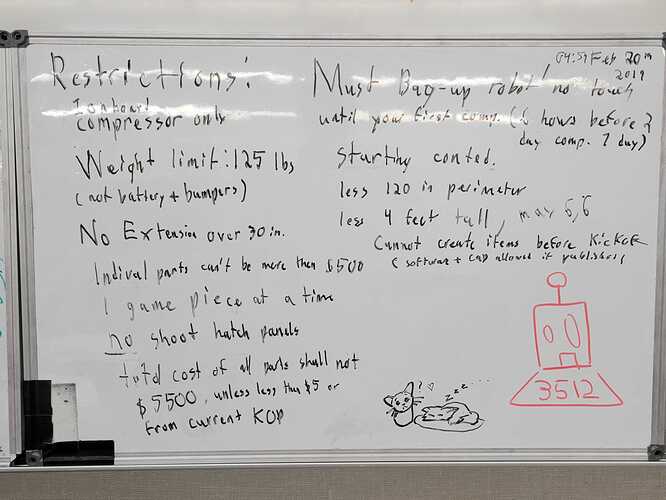 Restrictions:
1 onboard
compressor only
Weight limit: 125 lbs
(not battery + bumpers)
No Extension over 30 in.
Indival parts can't be more then $500
1 game piece at a time
no shoot hatch panels
total cost of all parts shall not
$5500, unless less than $5 or
from current KOP
04:59 Feb 20th
2019
Must Bag-up robot no touch
until your first comp. (6 hours before 2
day comp. 7 day)
starting
less 120 in perimeter
less 4 feet tall, max 6,6
Cannot create items before Kickoff
( software + CAD allowed if published
! ?
z z z . . .
3512